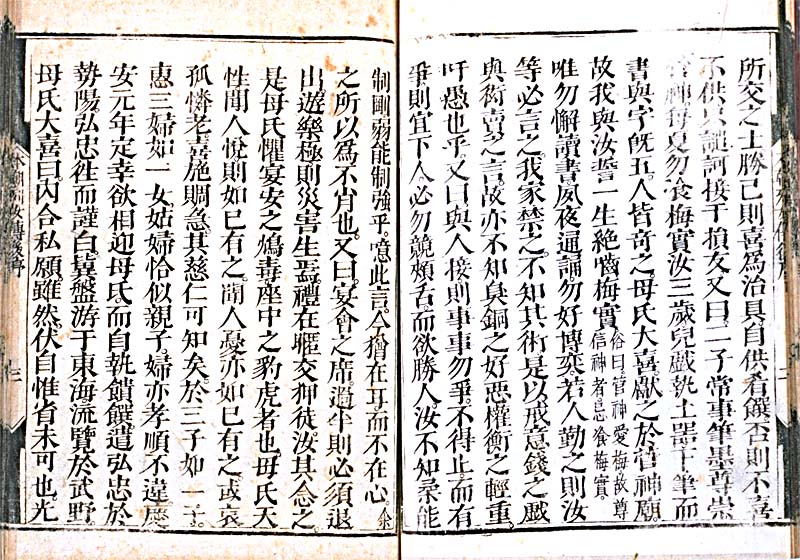 所交之士勝己則喜爲治具自供肴饌否則不喜
不供只譴訶接于損友又曰二子常事筆墨尊崇
菅神每夏勿食梅實汝三歲兒戲執土器下筆而
書與字旣五人皆奇之母氏大喜獻之於菅神廟
故我與汝誓一生絶嚼梅實俗曰菅神愛梅故尊
信神者忌食梅實
唯勿懈讀書夙夜通誦勿好博奕若人勤之則汝
等必言之我家禁之不知其術是以戒意錢之戲
與衒賣之言故亦不知臭銅之好惡權衡之輕重
吁愚也乎又曰與人接則事事勿爭不得止而有
爭則宜下人必勿競頰舌而欲勝人汝不知柔能
制剛弱能制強乎噫此言今猶在耳而不在心余
之所以爲不肖也又曰宴會之席過半則必須退
出遊樂極則災害生焉禮在睚交狎徒汝其念之
是母氏懼宴安之鴆毒座中之豹虎者也母氏天
性聞人悅則如己有之聞人憂亦如己有之或哀
孤憐老喜施賙急其慈仁可知矣於三子如一子
惠三婦如一女姑婦恰似親子婦亦孝順不違慶
安元年定幸欲相迎母氏而自執饋饌遣弘忠於
勢陽弘忠徃而謹白冀盤游于東海流覽於武野
母氏大喜曰內合私願雖然伏自惟省未可也先